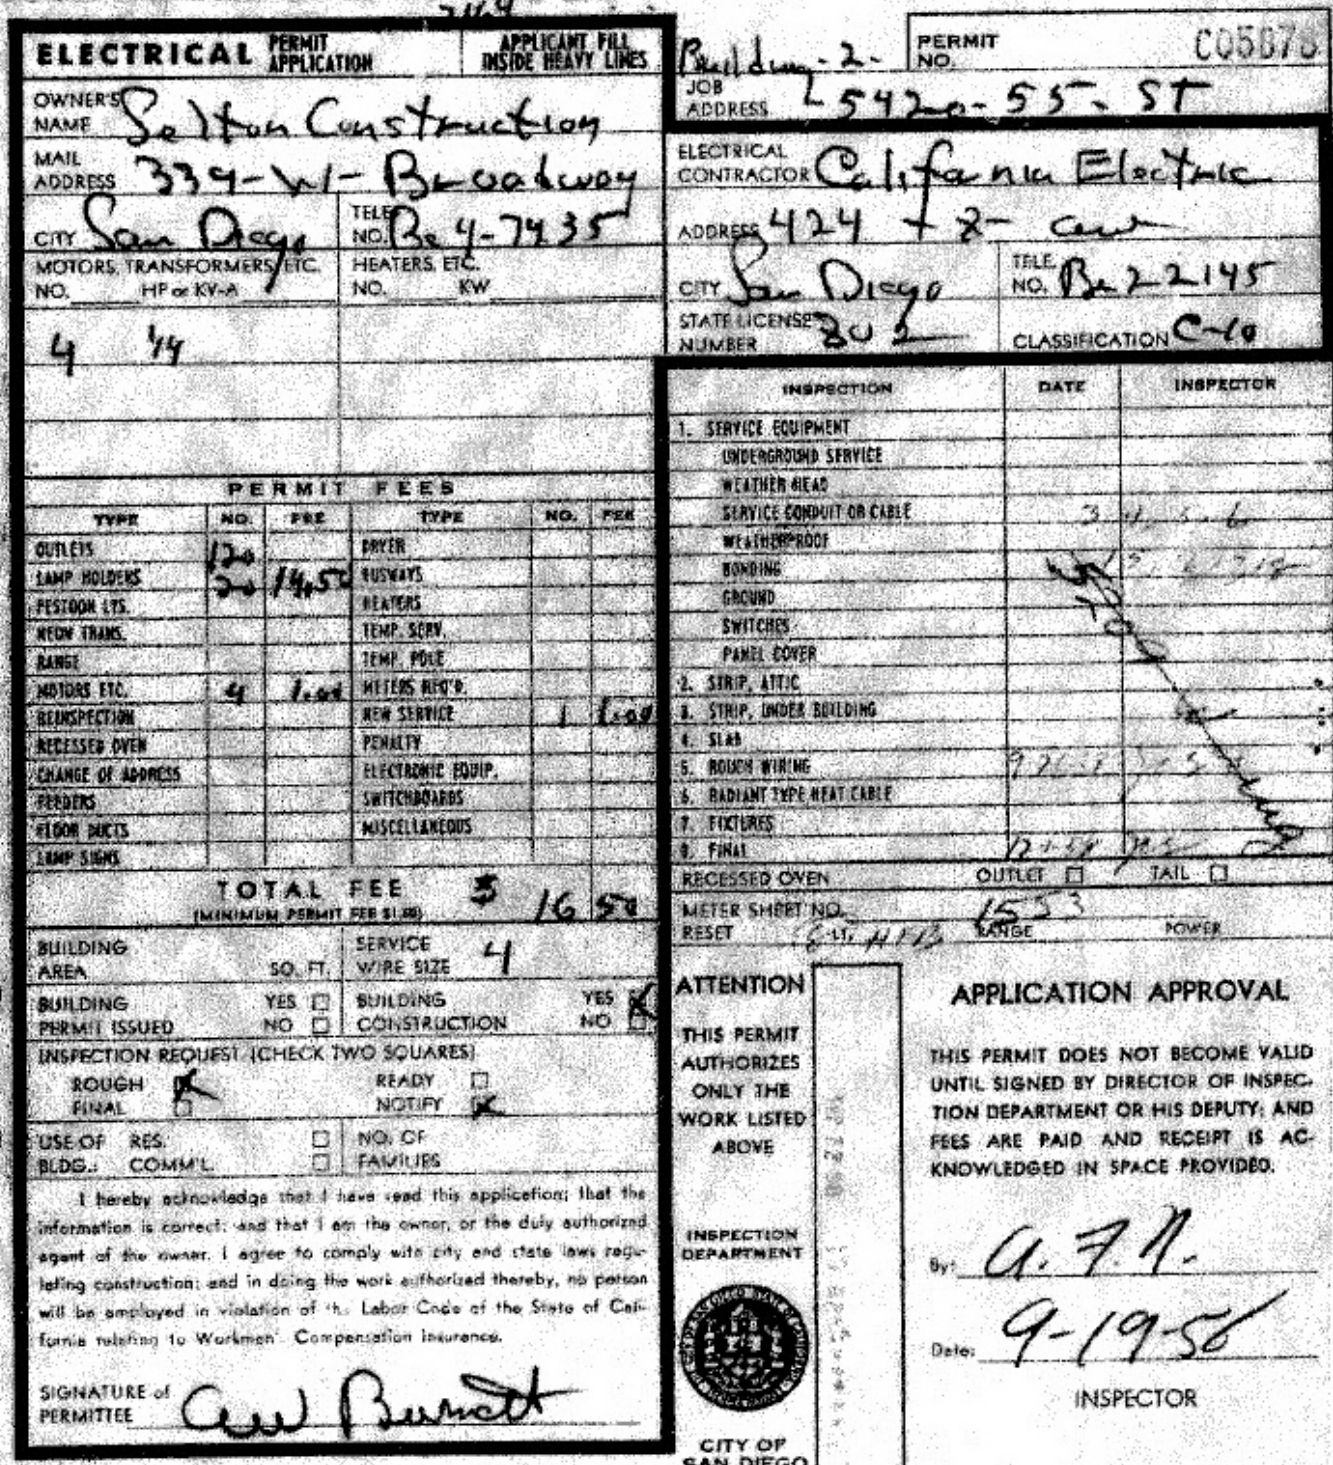 ELECTRICAL PERMIT APPLICATION
APPLICANT FILL INSIDE HEAVY LINES
OWNER'S NAME Selton Construction
MAIL ADDRESS 339-W- Broadway
CITY San Diego TELE. NO. Be 4-7435
MOTORS, TRANSFORMERS, ETC. HEATERS, ETC.
NO. HP or KV-A NO. KW
4 1/4
PERMIT FEES
TYPE NO. FEE TYPE NO. FEE
OUTLETS 120 DRYER
LAMP HOLDERS 20 14.50 BUSWAYS
FESTOON LTS. HEATERS
NEON TRANS. TEMP. SERV.
RANGE TEMP. POLE
MOTORS ETC. 4 1.00 METERS REQ'D.
REINSPECTION NEW SERVICE 1 1.00
RECESSED OVEN PENALTY
CHANGE OF ADDRESS ELECTRONIC EQUIP.
FEEDERS SWITCHBOARDS
FLOOR DUCTS MISCELLANEOUS
LAMP SIGNS
TOTAL FEE $ 16 50
(MINIMUM PERMIT FEE $1.00)
BUILDING AREA SQ. FT. SERVICE WIRE SIZE 4
BUILDING PERMIT ISSUED YES NO BUILDING CONSTRUCTION YES X NO
INSPECTION REQUEST (CHECK TWO SQUARES)
ROUGH X READY
FINAL NOTIFY X
USE OF BLDG.: RES. COMM'L. NO. OF FAMILIES
I hereby acknowledge that I have read this application; that the
information is correct; and that I am the owner, or the duly authorized
agent of the owner. I agree to comply with city and state laws regu-
lating construction; and in doing the work authorized thereby, no person
will be employed in violation of the Labor Code of the State of Cali-
fornia relating to Workmen's Compensation Insurance.
SIGNATURE of PERMITTEE
Building-2-
PERMIT NO.
JOB ADDRESS 5420-55-ST
ELECTRICAL CONTRACTOR California Electric
ADDRESS 424
CITY San Diego TELE. NO. Be 22145
STATE LICENSE NUMBER 802 CLASSIFICATION C-10
INSPECTION DATE INSPECTOR
1. SERVICE EQUIPMENT
UNDERGROUND SERVICE
WEATHER HEAD
SERVICE CONDUIT OR CABLE
WEATHERPROOF
BONDING
GROUND
SWITCHES
PANEL COVER
2. STRIP, ATTIC
3. STRIP, UNDER BUILDING
4. SLAB
5. ROUGH WIRING
6. RADIANT TYPE HEAT CABLE
7. FIXTURES
8. FINAL
RECESSED OVEN OUTLET TAIL
METER SHEET NO. 1553
RESET RANGE POWER
ATTENTION
THIS PERMIT
AUTHORIZES
ONLY THE
WORK LISTED
ABOVE
INSPECTION
DEPARTMENT
CITY OF
SAN DIEGO
APPLICATION APPROVAL
THIS PERMIT DOES NOT BECOME VALID
UNTIL SIGNED BY DIRECTOR OF INSPEC-
TION DEPARTMENT OR HIS DEPUTY; AND
FEES ARE PAID AND RECEIPT IS AC-
KNOWLEDGED IN SPACE PROVIDED.
By: A. F. N.
Date: 9-19-56
INSPECTOR